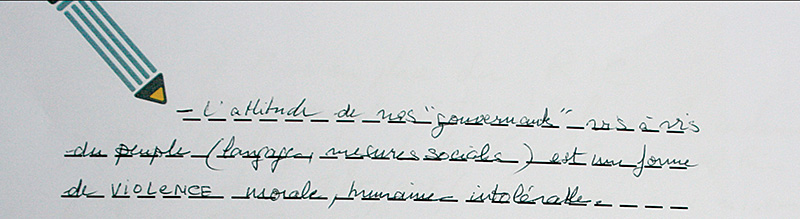 - L'attitude de nos "gouvernants" vis à vis
du peuple (langage, mesures sociales) est une forme
de VIOLENCE morale, humaine intolérable.